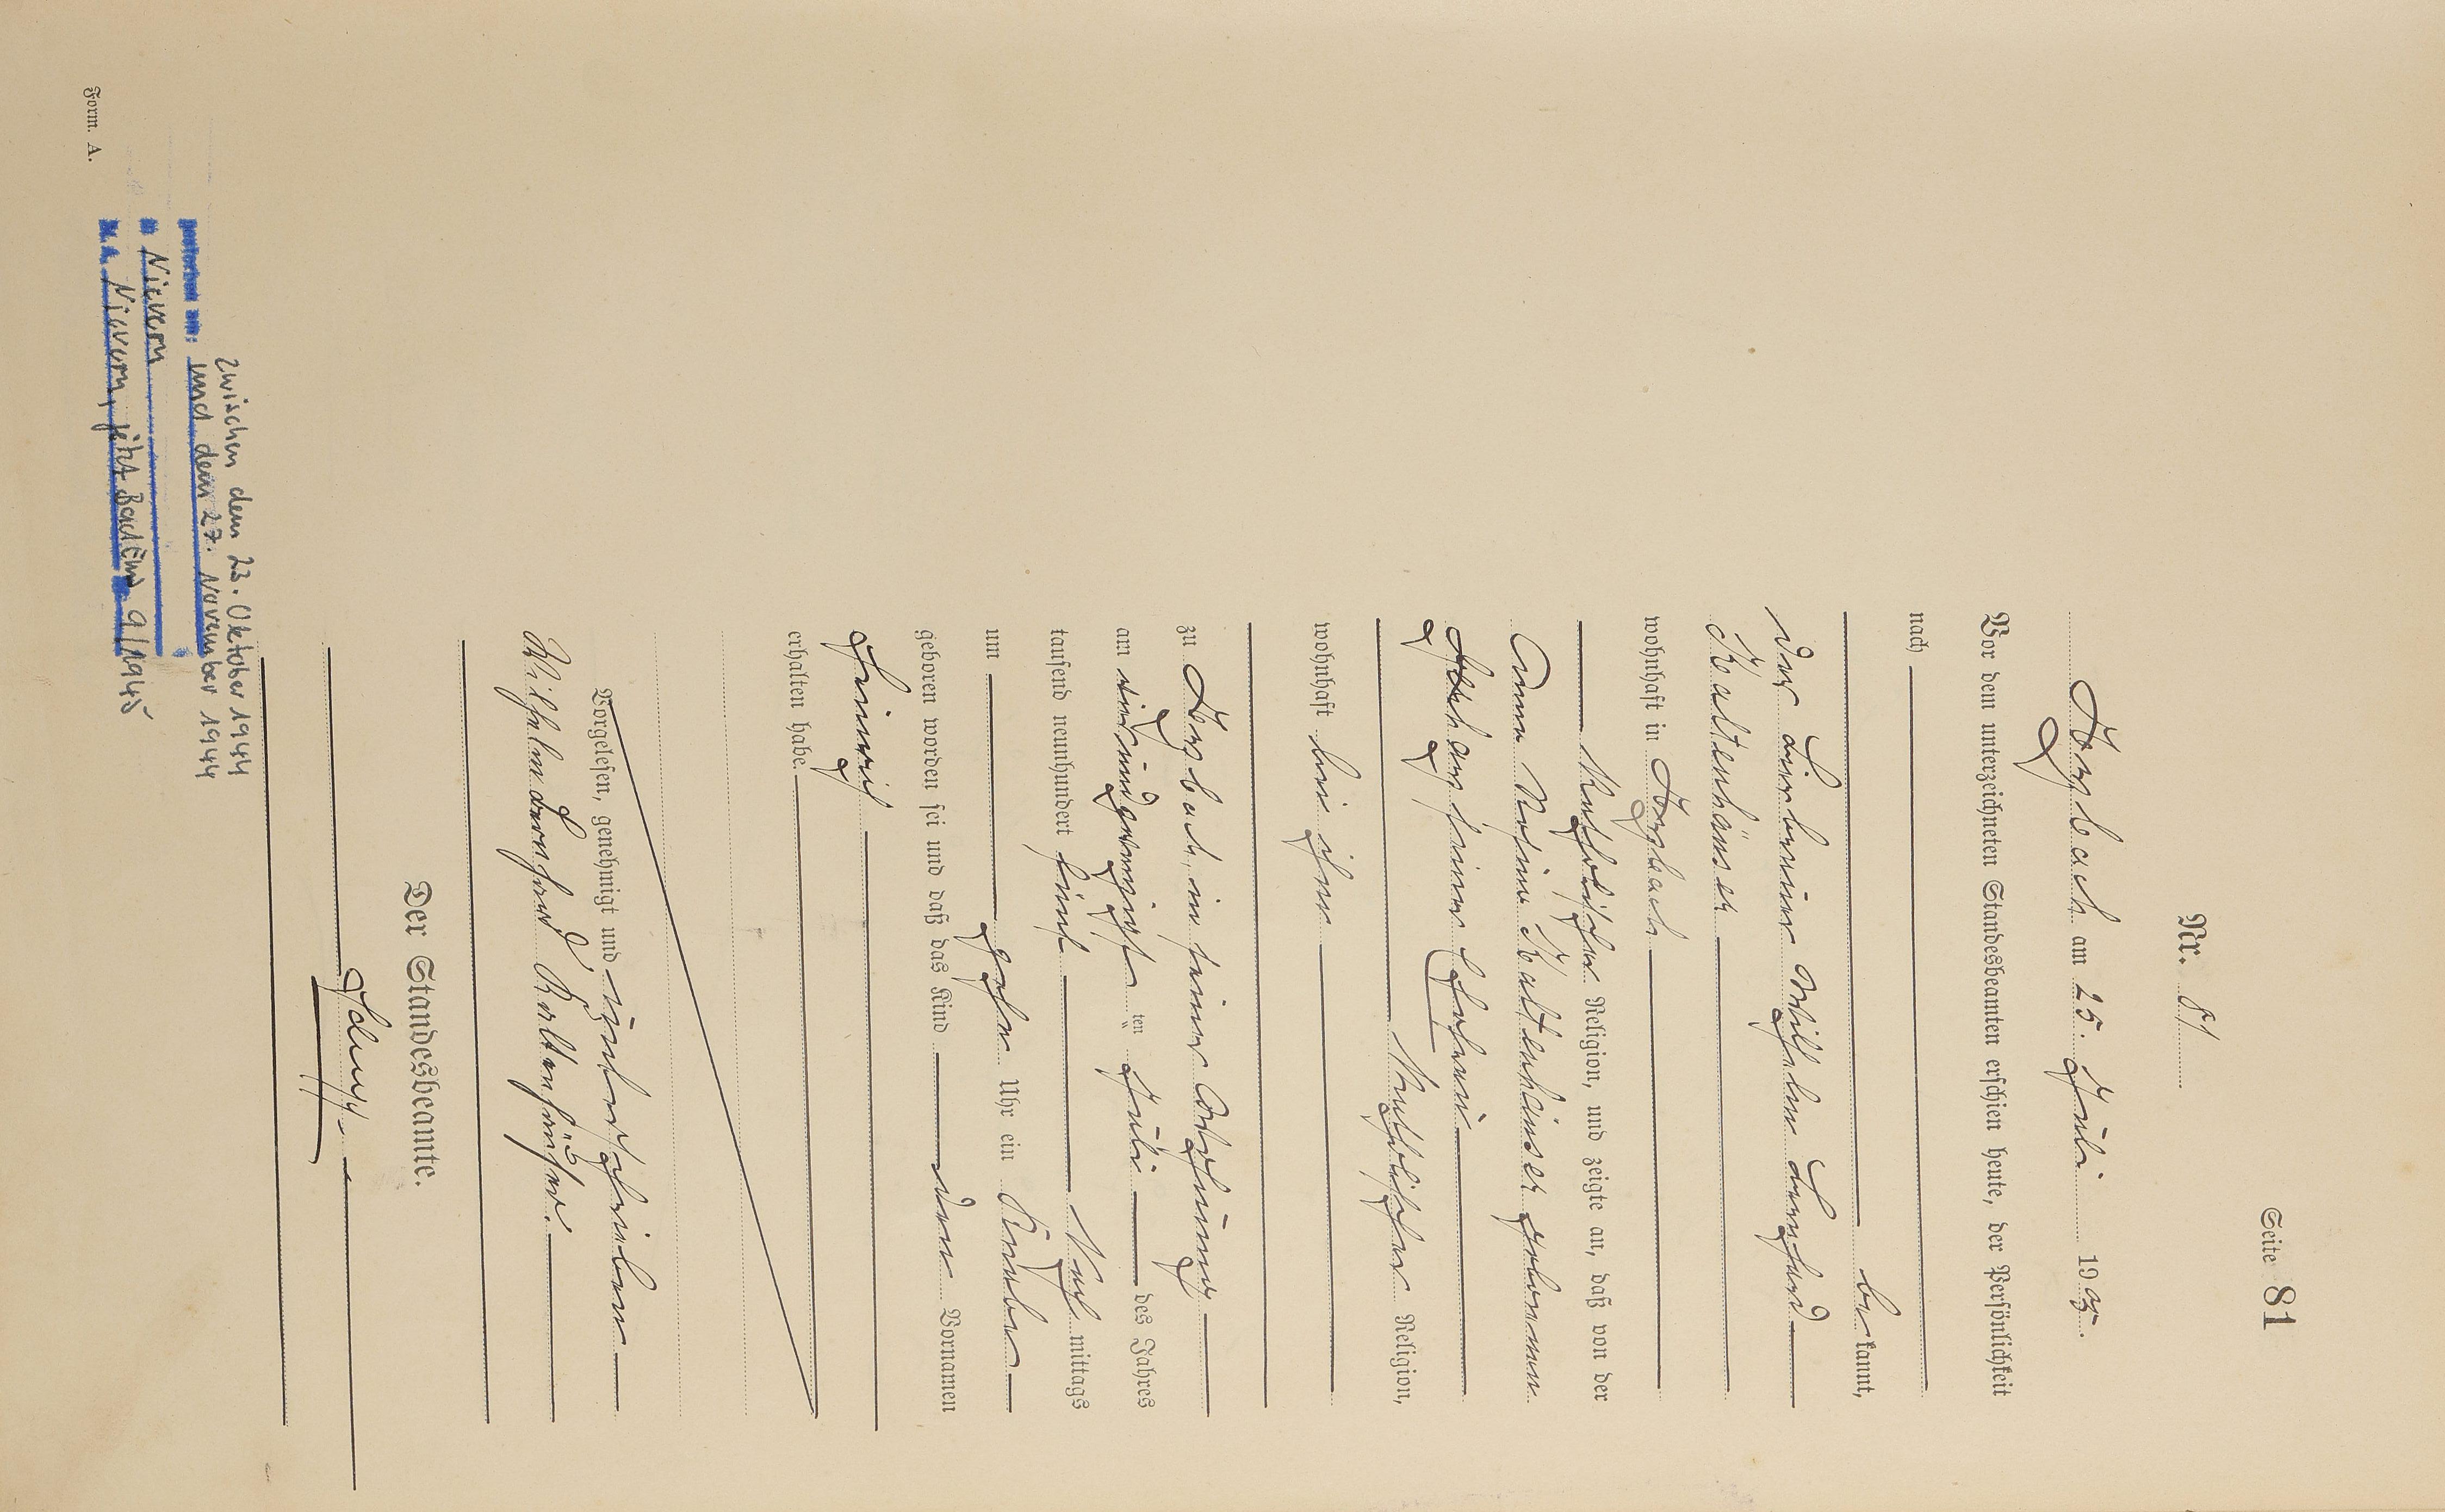 Seite 81
Nr. 81
Dernbach am 25. Juli 1905.
Vor dem unterzeichneten Standesbeamten erschien heute, der Persönlichkeit
nach
bekannt,
der Wilhelm
Kaltenhäuser
wohnhaft in Dernbach
katholischer Religion, und zeigte an, daß von der
Anna Kaltenhäuser geborenen
seiner Ehefrau
katholischer Religion,
wohnhaft bei ihm
zu Dernbach in seiner Wohnung
am vierundzwanzigsten Juli des Jahres
tausend neunhundert fünf Nachmittags
um Uhr ein Knabe
geboren worden sei und daß das Kind den Vornamen
Heinrich
erhalten habe.
Vorgelesen, genehmigt und unterschrieben
Wilhelm Kaltenhäuser.
Der Standesbeamte.
zwischen dem 23. Oktober 1944
gestorben am: und dem 27. November 1944
in Nievern
St. A. Nievern, jetzt Bad Ems 9/1945
Form. A.